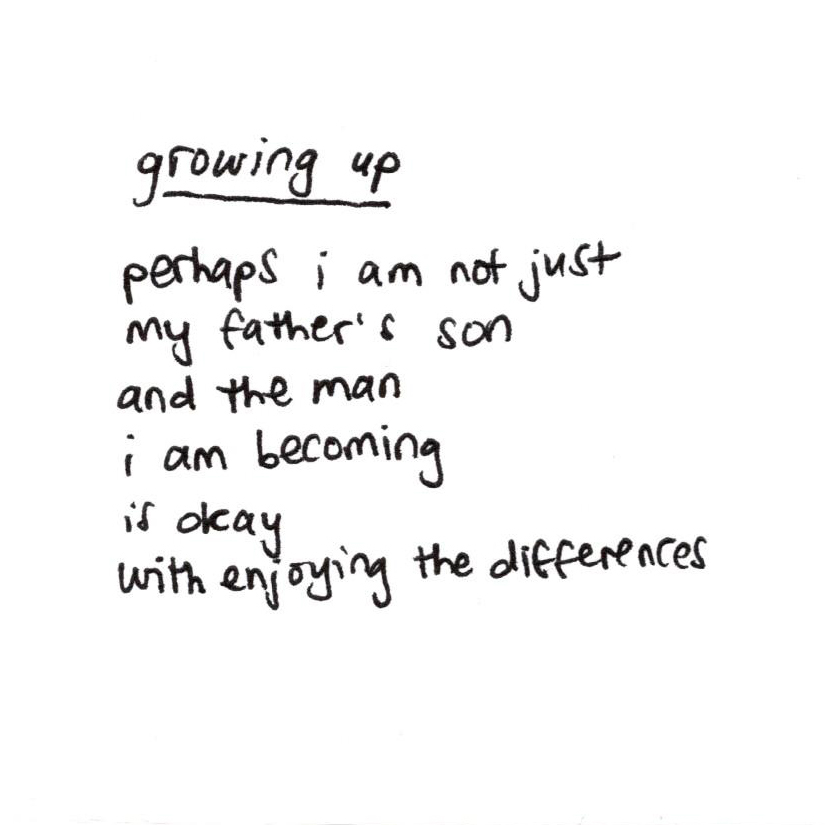 growing up
perhaps i am not just
my father's son
and the man
i am becoming
is okay
with enjoying the differences